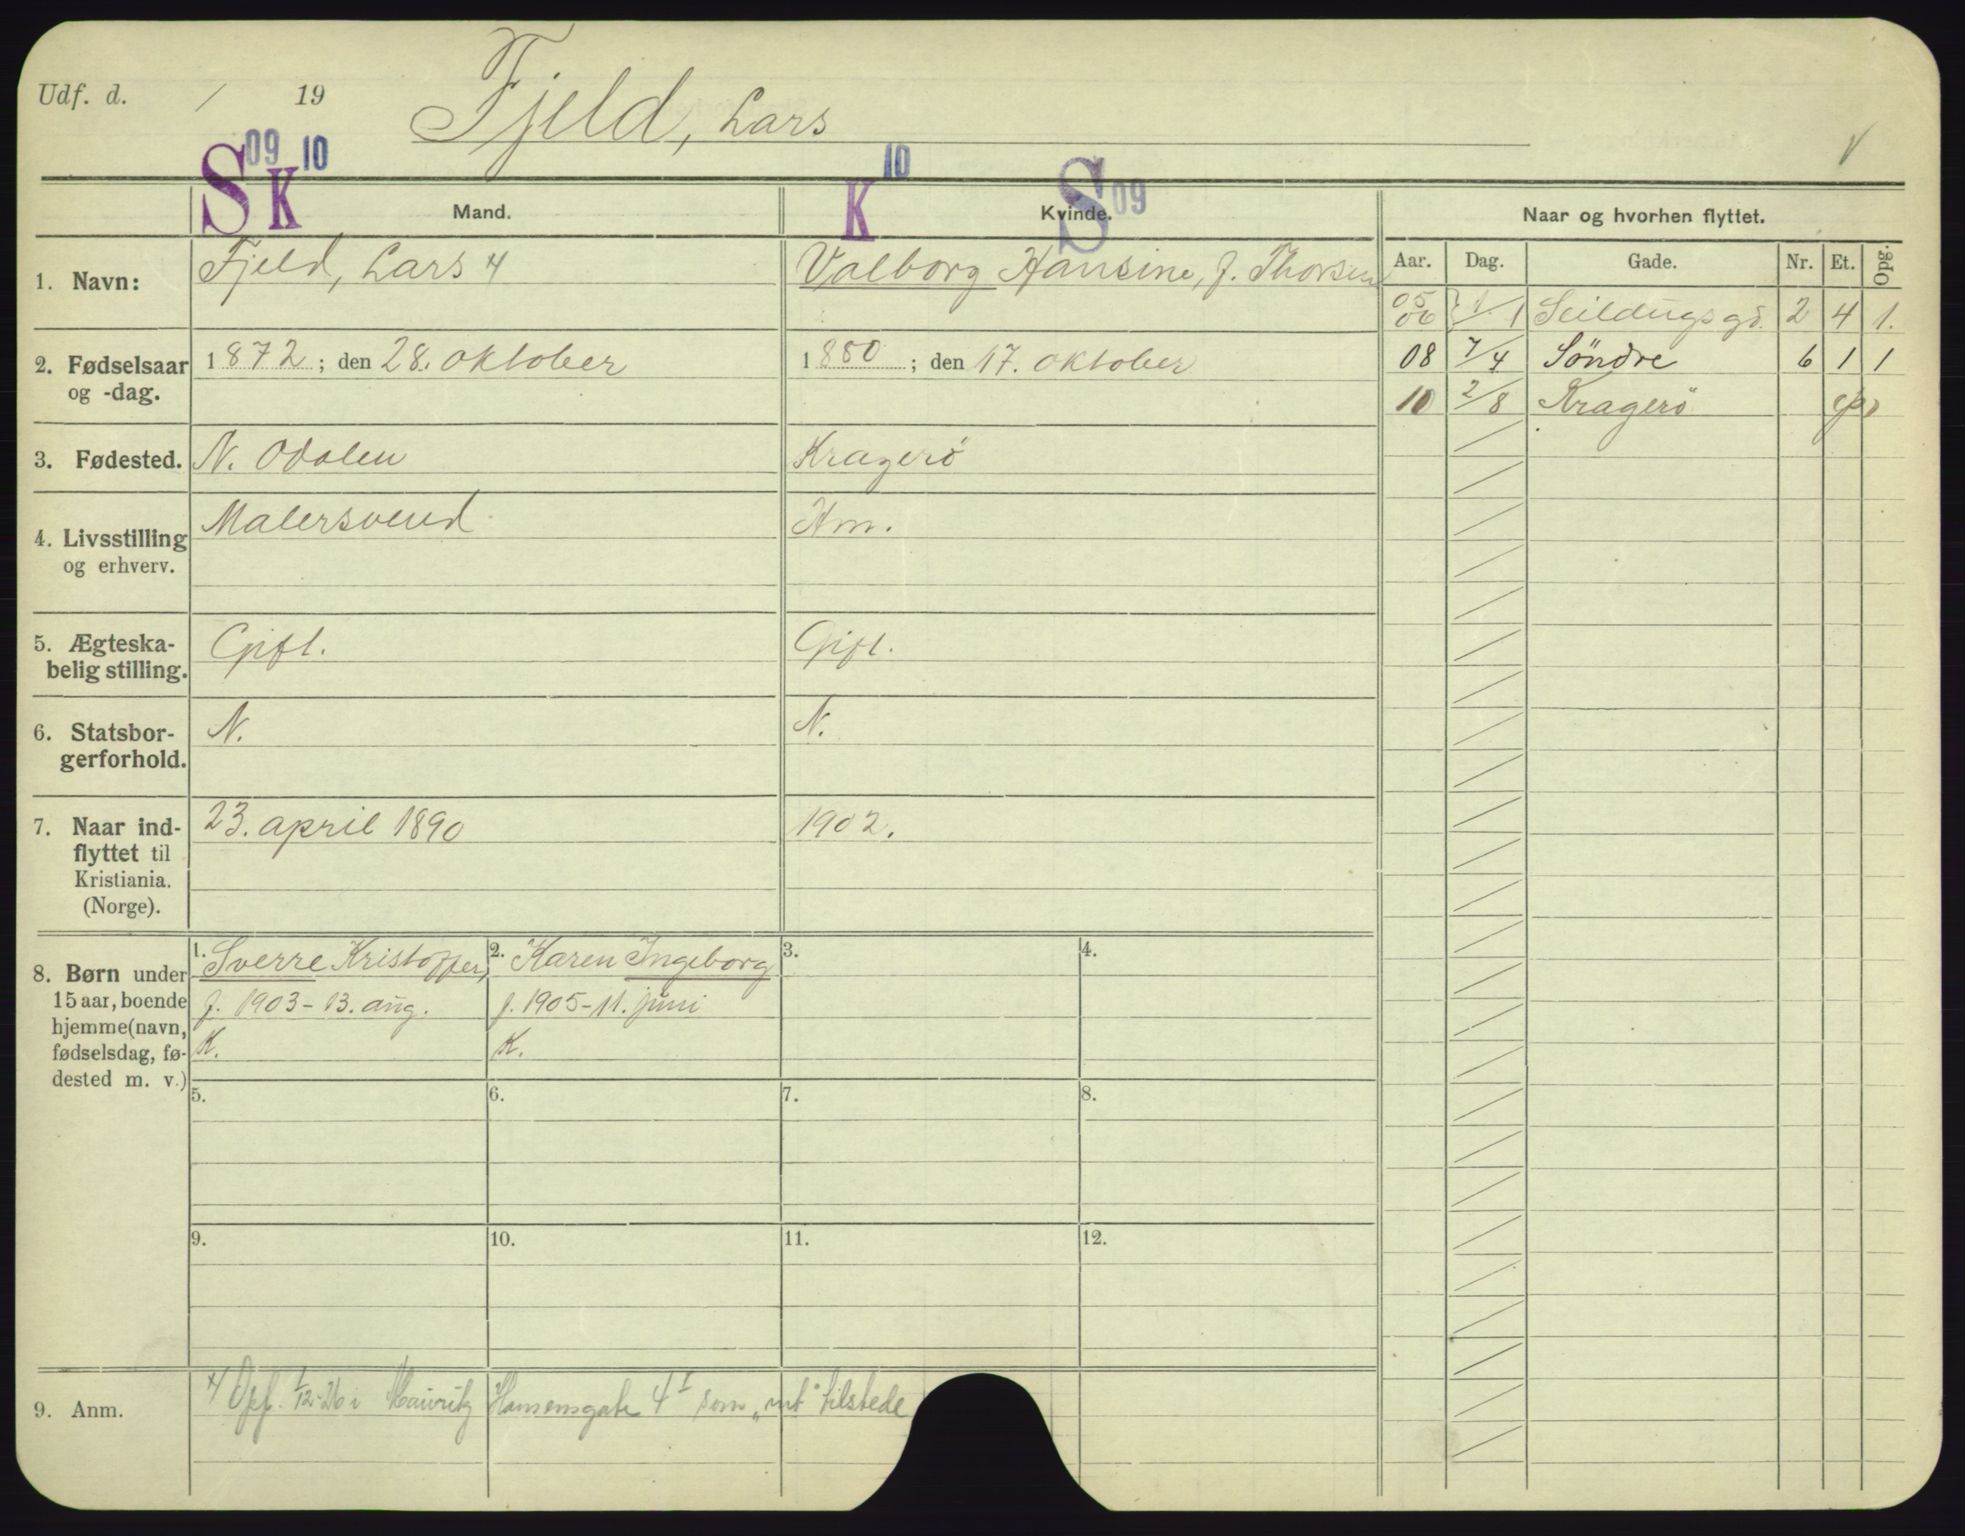 Udf. d. / 19 Fjeld, Lars
S 09 K 10 K 10 S 09
Mand. Kvinde. Naar og hvorhen flyttet.
Aar. Dag. Gade. Nr. Et. Opg.
1. Navn: Fjeld, Lars Valborg Hansine, f. Thorsen
05 06 1/1 Seildugsgd. 2 4 1.
2. Fødselsaar og -dag. 1872; den 28. oktober 1880; den 17. oktober
08 7/4 Söndre 6 1 1
10 2/8 Kragerö
3. Fødested. N. Odalen Kragerö
4. Livsstilling og erhverv. Malersvend Hm.
5. Ægteska-
belig stilling. Gift. Gift.
6. Statsbor-
gerforhold. N. N.
7. Naar ind-
flyttet til
Kristiania.
(Norge). 23. april 1890 1902.
8. Børn under
15 aar, boende
hjemme (navn,
fødselsdag, fø-
dested m. v.)
1. Sverre Kristoffer,
f. 1903 - 13. aug.
K.
2. Karen Ingeborg
f. 1905 - 11. juni
K.
3.
4.
5.
6.
7.
8.
9.
10.
11.
12.
9. Anm. Opf. 1/12-26 i Mauritz Hansensgate 4 I som „mt" tilstede